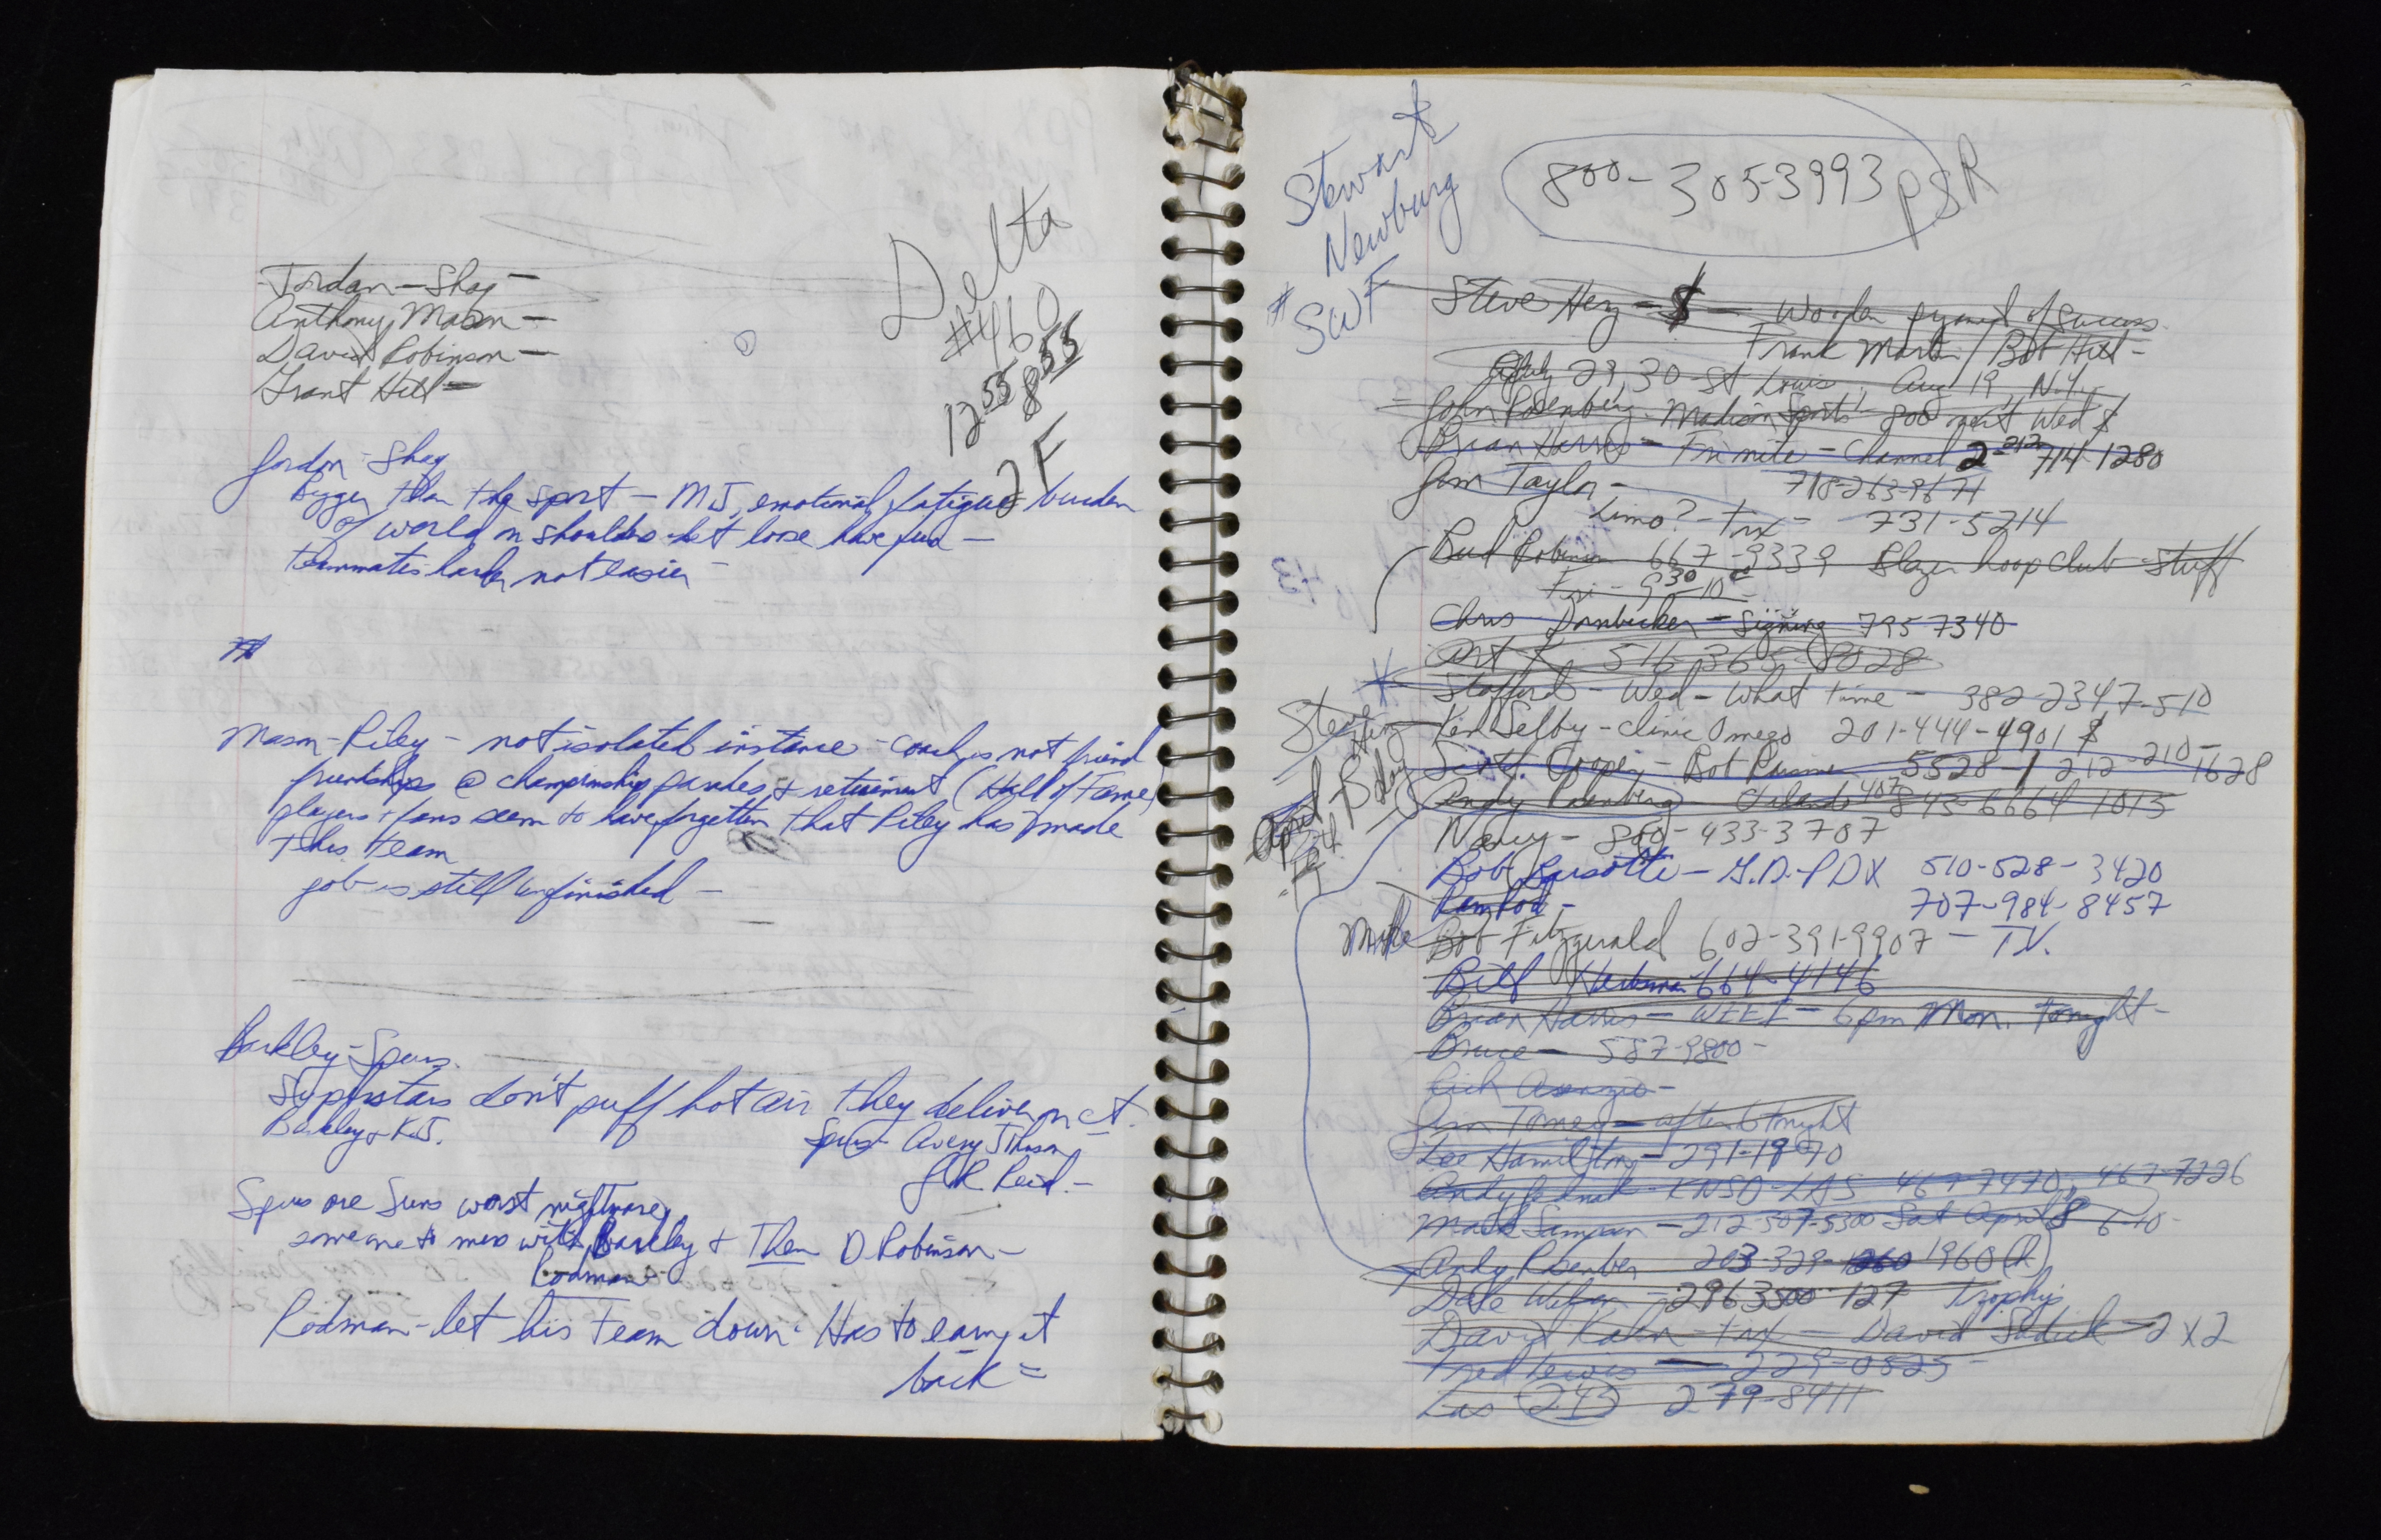 Jordan - Shaq -
Anthony Mason -
David Robinson -
Grant Hill -
Delta
#460
12 55 8 55
2F
Jordan - Shaq
Bigger than the sport - MJ, emotional fatigue - burden
of world on shoulders - let loose have fun -
teammates harder not easier -
Mason - Riley - not isolated instance - coach is not friend
friendships @ championship parades & retirement (Hall of Fame)
players & fans seem to have forgotten that Riley has made
this team
job is still unfinished -
Barkley - Spurs.
Superstars don't puff hot air they deliver on ct.
Barkley & K.J.
Spurs - Avery Johnson
JR Reid. -
Spurs are Suns worst nightmare,
someone to mess with Barkley & Then D Robinson -
Rodman -
Rodman - let his team down. Has to earn it
back =
Stewart
Newburg
# SWF
800-305-3993 PSR
Steve Herz - $ - Wooden pyramid of success
Frank Martin / Bob Hill -
29, 30 - St Louis, Aug 19, N.Y.
John Rosenberg - Madison Sports - 800 meet Wed $
Brian Harris - Fri nite - Channel 2 - 212 714-1280
Jim Taylor - 718-263-9671
Limo? - Trx - 731-5214
Bud Robinson 667-9339 Blazer hoop club - stuff
Fri - 9 30 - 10 00 -
Chris Dornbecker - Signing 795 7340
Art K 516 365-8028
Stafford - Wed - what time - 382-2347-510
Steve
Ken Selby - clinic Omega 201-444-4901 $
Scott Cooper - Bob 5528-1 212-210-1628
April
24
B day
Andy Rosenberg - Orlando 407 843-6664 1015
Navy - 800-433-3707
Bob Barsotti - G.D. - PDX 510-528-3420
Ramrod - 707-984-8457
Mike Bob Fitzgerald 602-391-9907 - T.V.
Bill 664-4146
Brian Harris - WEEI - 6pm Mon. Tonight -
Bruce - 587-9800 -
Rich
Jim - after 6 tonight
Lee Hamilton - 291-1970
Andy - KNSD - LAS 467-7470, 467-7226
Mark Sampson - 212-507-5300 Sat April 8 6-10 -
Andy Rosenber 203-329-1260 1960 (h)
Dale - 2963500-127 Trophy
David Kahn - trx - David - 2 x 2
Fred Lewis - 229-0525 -
Las 243 279-8411